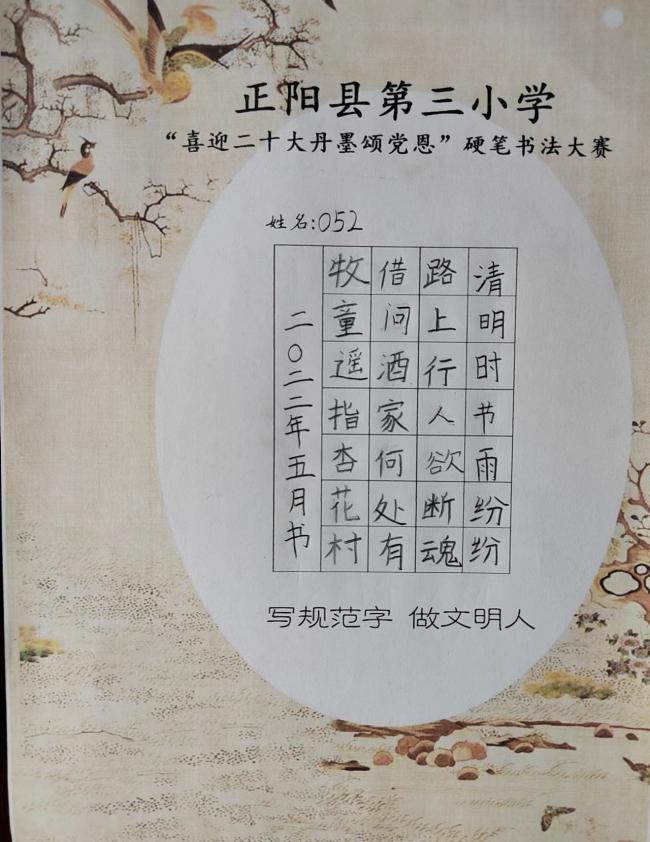 正阳县第三小学
“喜迎二十大丹墨颂党恩”硬笔书法大赛
姓名:052
清明时书雨纷纷
路上行人欲断魂
借问酒家何处有
牧童遥指杏花村
二〇二二年五月书
写规范字 做文明人